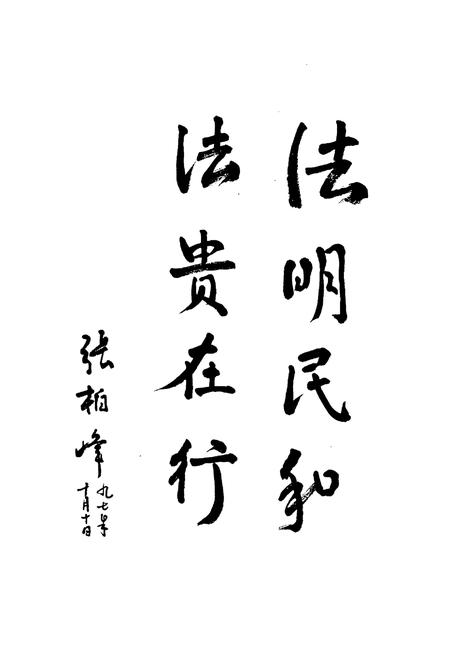 法明民和
法贵在行
張柏峰
九七年
十月十日